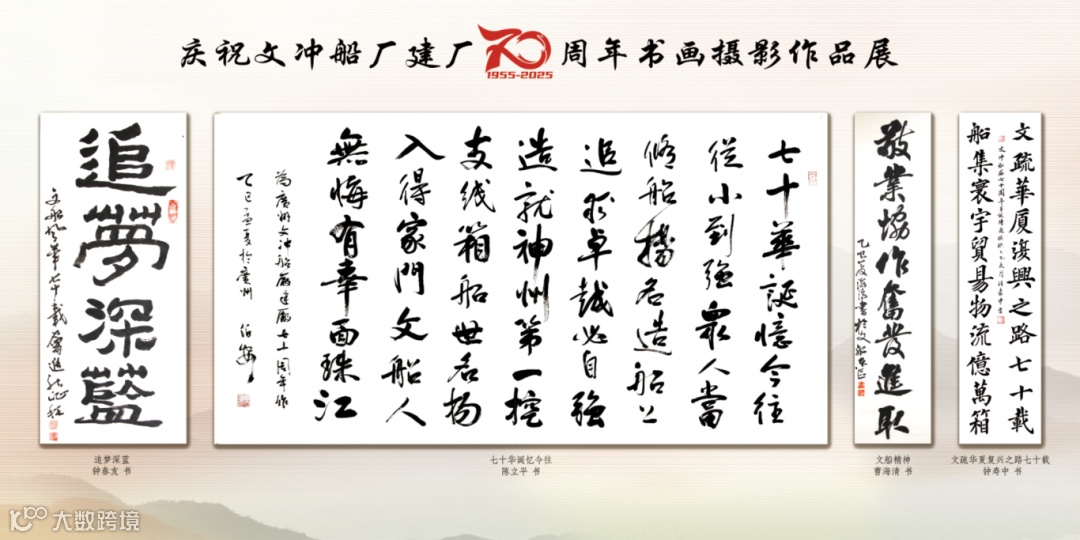 庆祝文冲船厂建厂70周年书画摄影作品展
1955-2025
追夢深藍
文船風華七十載
七十華誕憶今往
從小到強眾人當
脩船揚名造船上
追求卓越必自強
造就神州第一挖
支线箱船世名扬
入得家門文船人
無悔有幸面珠江
為廣州文冲船廠建廠七十周年作
乙巳孟夏於廣州
敬業協作奮發進取
文疏華厦復興之路七十載
船集寰宇貿易物流億萬箱
追梦深蓝
钟春友 书
七十华诞忆今往
陈立平 书
文船精神
曹海清 书
文疏华夏复兴之路七十载
钟寿中 书
大数跨境